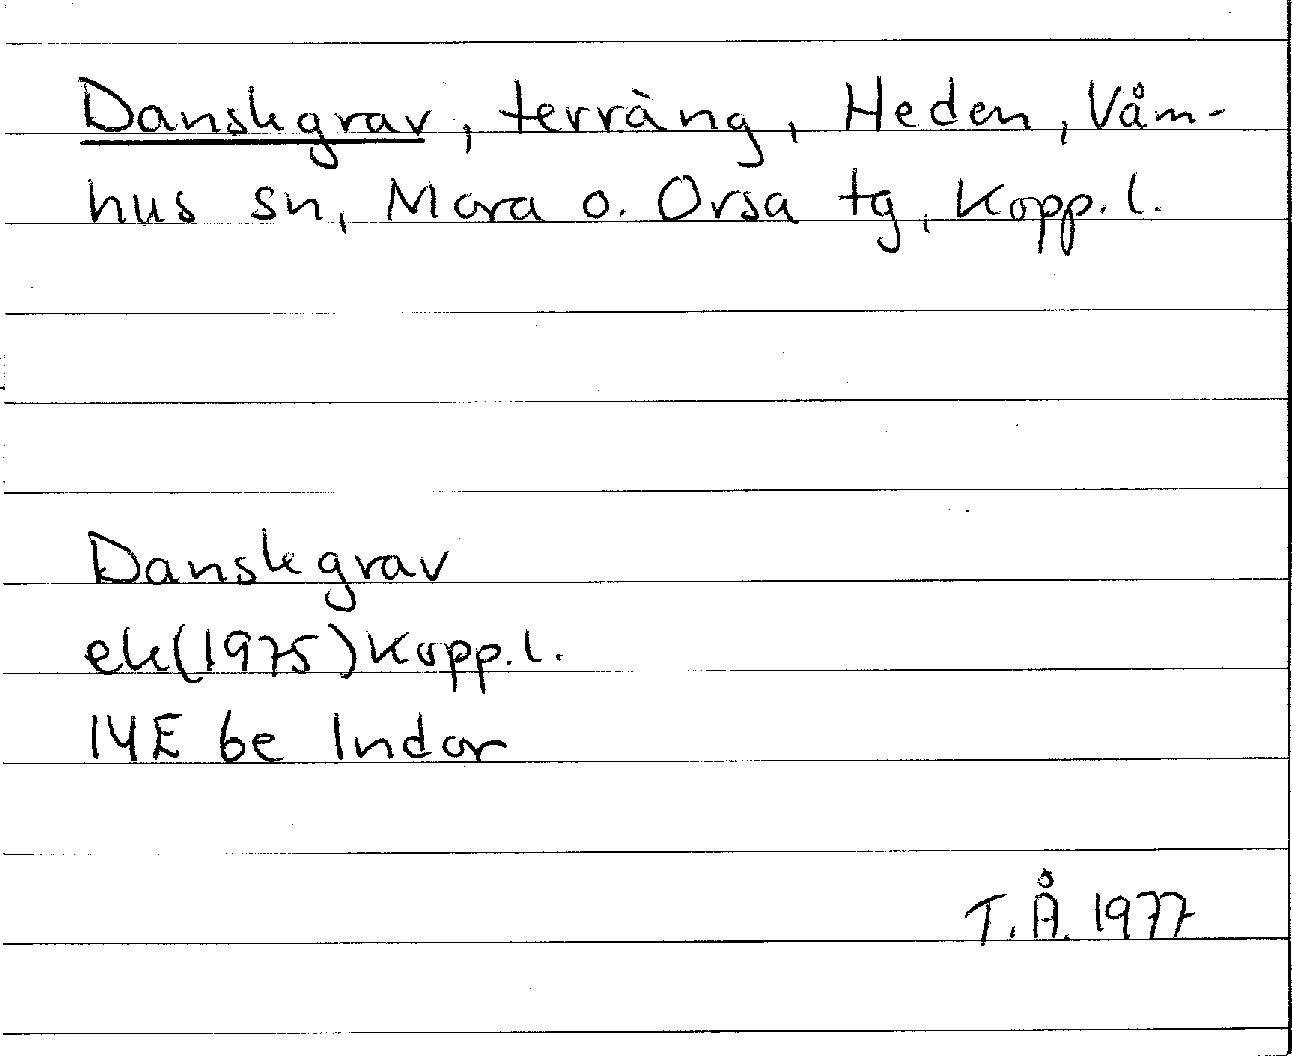 Danskgrav, terräng, Heden, Våm-
hus sn, Mora o. Orsa tg, Kopp. l.
Danskgrav
ek(1975) Kopp. l.
14E 6e Indor
T.Å. 1977